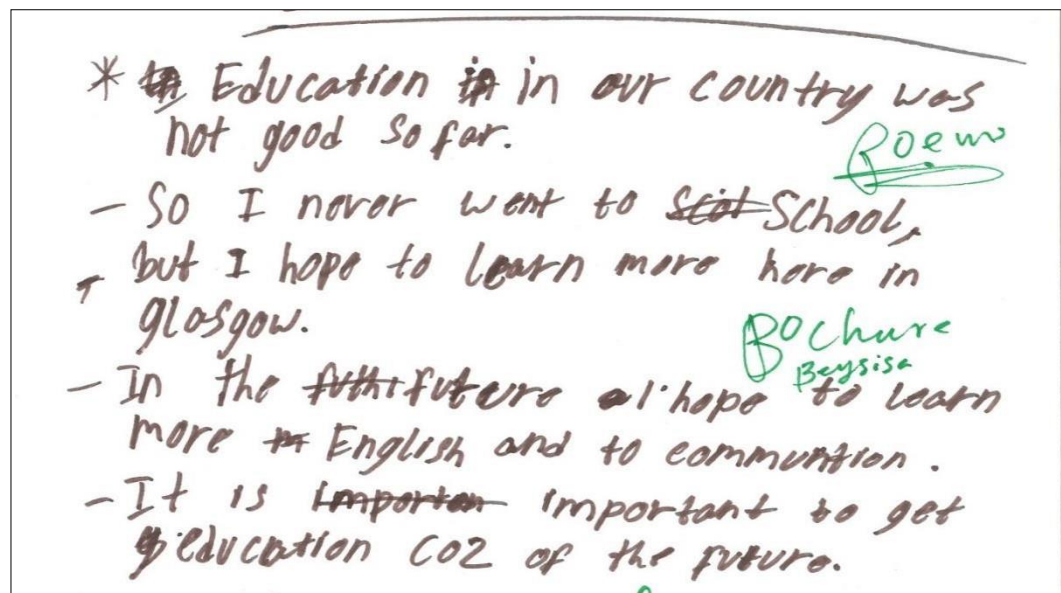 * Education in our country was
not good so far.
Poems
- So I never went to School,
- but I hope to learn more here in
glasgow.
Bochure
- In the future I hope to learn
more English and to communtion.
- It is important to get
education coz of the future.